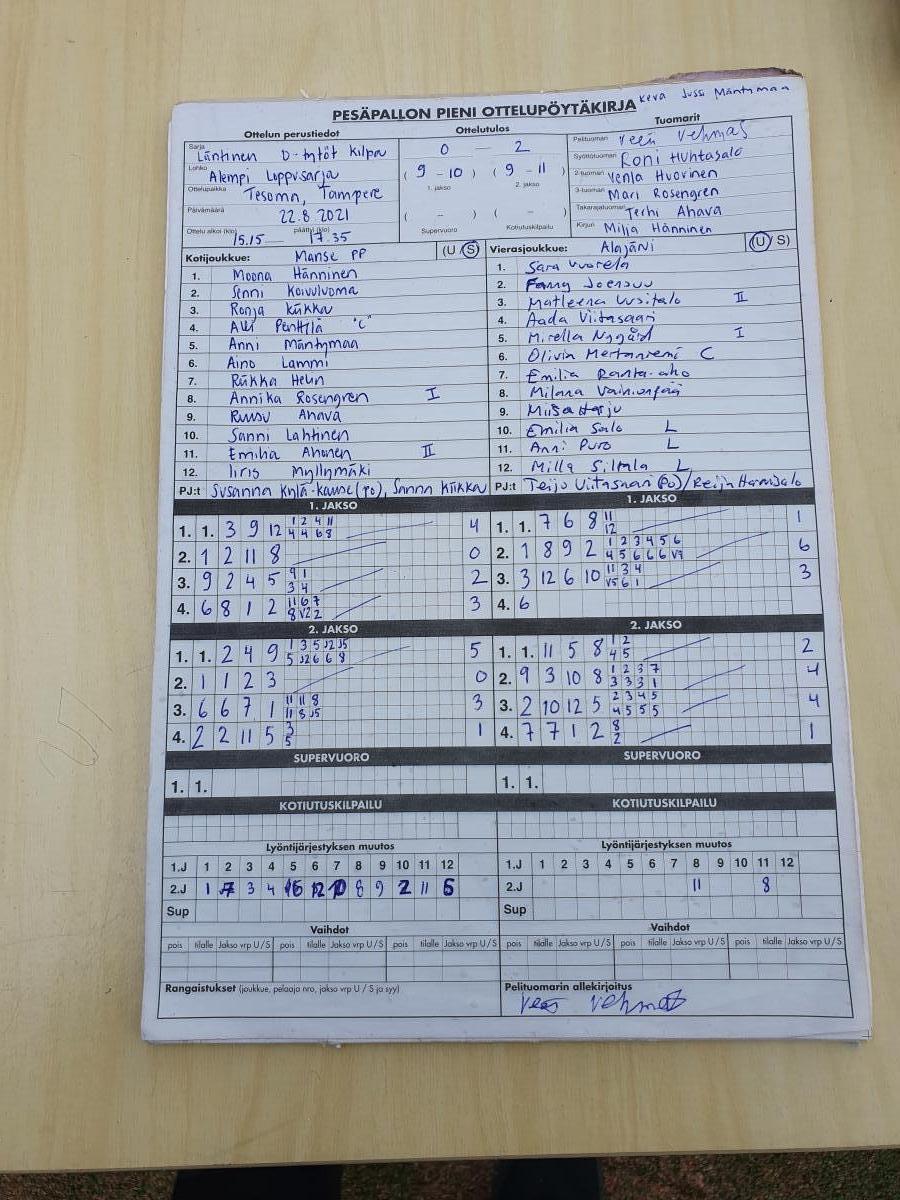 PESÄPALLON PIENI OTTELUPÖYTÄKIRJA
Keva Jussi Mäntymaa
Ottelun perustiedot
Sarja Läntinen D-tytöt Kilpa
Lohko Alempi Loppusarja
Ottelupaikka Tesoma, Tampere
Päivämäärä 22.8.2021
Ottelu alkoi (klo) 15.15 päättyi (klo) 17.35
Ottelutulos
0 — 2
( 9 - 10 ) ( 9 - 11 )
1. jakso 2. jakso
( - ) ( - )
Supervuoro Kotiutuskilpailu
Tuomarit
Pelituomari Veeti Vehmas
Syöttötuomari Roni Huhtasalo
2-tuomari Venla Huovinen
3-tuomari Mari Rosengren
Takarajatuomari Terhi Ahava
Kirjuri Milja Hänninen
Kotijoukkue: Manse PP (U / S)
1. Moona Hänninen
2. Senni Koivuluoma
3. Ronja Kiikka
4. Alli Penttilä "C"
5. Anni Mäntymaa
6. Aino Lammi
7. Riikka Helin
8. Annika Rosengren I
9. Ruusu Ahava
10. Sanni Lahtinen
11. Emilia Ahonen II
12. Iiris Myllymäki
PJ:t Susanna Kylä-Kause (po), Sanna Kiikka
Vierasjoukkue: Alajärvi (U / S)
1. Sara Vuorela
2. Fanny Joensuu
3. Matleena Uusitalo II
4. Aada Viitasaari
5. Mirella Nygård I
6. Olivia Mertaniemi C
7. Emilia Ranta-aho
8. Milana Vainionpää
9. Miisa Harju
10. Emilia Salo L
11. Anni Puro L
12. Milla Siltala L
PJ:t Teijo Viitasaari (po) / Reija Harmsalo
1. JAKSO
1. 1. 3 9 12 1 2 4 11 4
4 4 6 8
2. 1 2 11 8 0
3. 9 2 4 5 9 1 2
3 4
4. 6 8 1 2 11 6 7 3
8 V2 2
2. JAKSO
1. 1. 2 4 9 1 3 5 J2 J5 5
5 J2 6 6 8
2. 1 1 2 3 0
3. 6 6 7 1 11 11 8 3
11 8 J5
4. 2 2 11 5 3 1
5
SUPERVUORO
1. 1.
KOTIUTUSKILPAILU
1. JAKSO
1. 1. 7 6 8 11 1
12
2. 1 8 9 2 1 2 3 4 5 6 6
4 5 6 6 6 V7
3. 3 12 6 10 11 3 4 3
V5 6 1
4. 6
2. JAKSO
1. 1. 11 5 8 1 2 2
4 5
2. 9 3 10 8 1 2 3 7 4
3 3 3 1
3. 2 10 12 5 2 3 4 5 4
4 5 5 5
4. 7 7 1 2 8 1
2
SUPERVUORO
1. 1.
KOTIUTUSKILPAILU
Lyöntijärjestyksen muutos
1.J 1 2 3 4 5 6 7 8 9 10 11 12
2.J 1 7 3 4 6 12 10 8 9 2 11 5
Sup
Vaihdot
pois tilalle Jakso vrp U / S pois tilalle Jakso vrp U / S pois tilalle Jakso vrp U / S
Rangaistukset (joukkue, pelaaja nro, jakso vrp U / S ja syy)
Lyöntijärjestyksen muutos
1.J 1 2 3 4 5 6 7 8 9 10 11 12
2.J 11 8
Sup
Vaihdot
pois tilalle Jakso vrp U / S pois tilalle Jakso vrp U / S pois tilalle Jakso vrp U / S
Pelituomarin allekirjoitus
Veeti Vehmas